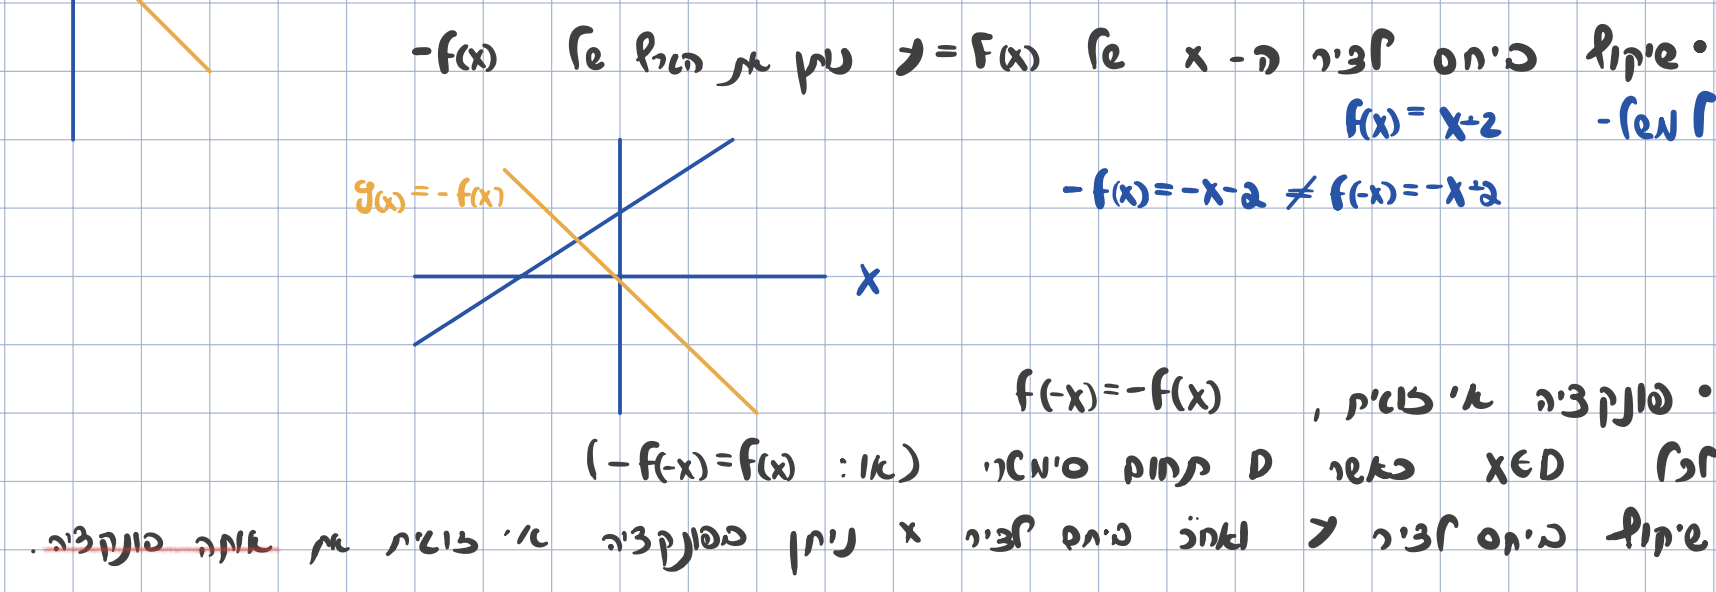 • שיקוף ביחס לציר ה- x של y = f(x) נותן את הגרף של -f(x)
למשל- f(x) = x+2
-f(x) = -x-2 ≠ f(-x) = -x+2
g(x) = -f(x)
x
• פונקציה אי זוגית, f(-x) = -f(x)
לכל x∈D כאשר D תחום סימטרי (או: -f(-x) = f(x))
שיקוף ביחס לציר y ואחכ ביחס לציר x ניתן בפונקציה אי זוגית את אותה פונקציה.